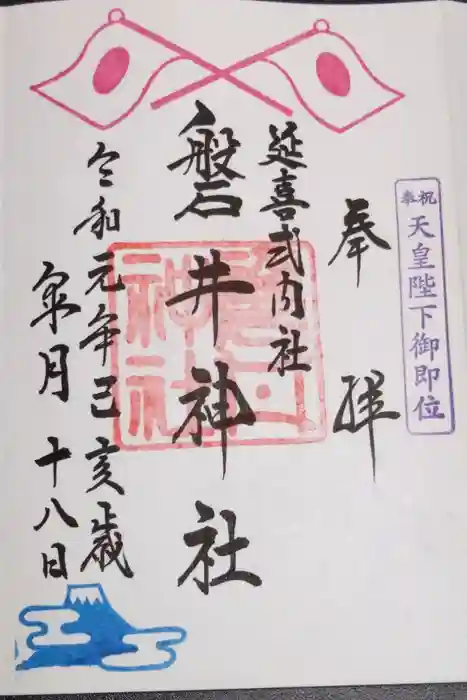 奉祝
天皇陛下御即位
奉拝
延喜式内社
磐井神社
令和元年己亥歳
皐月十八日